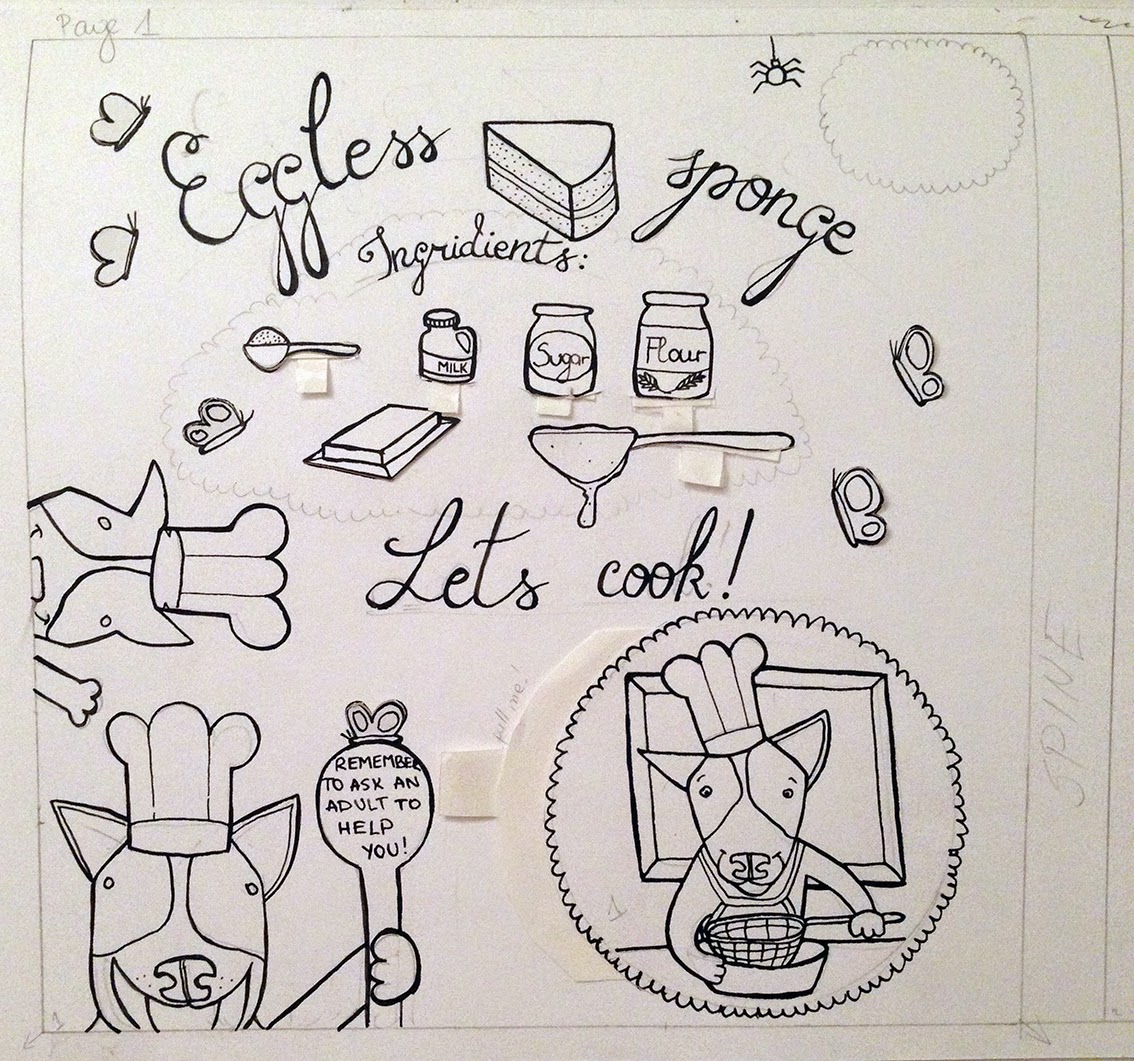 Page 1
Eggless sponge
Ingridients:
MILK
Sugar
Flour
Lets cook!
pull me!
REMEMBER
TO ASK AN
ADULT TO
HELP
YOU!
SPINE
1